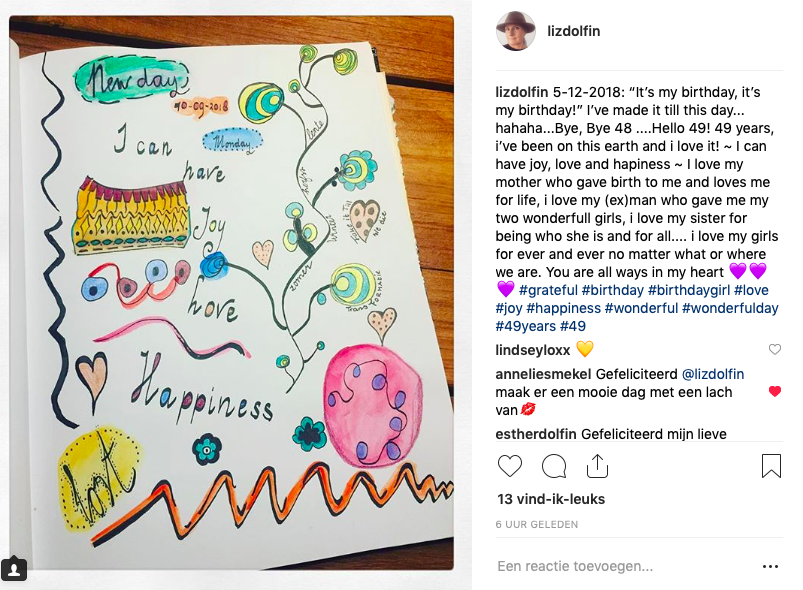 New day
10-09-2018
Monday
I can
have
Joy
Love
Happiness
lente
winter
zomer
lizdolfin
lizdolfin 5-12-2018: “It’s my birthday, it’s
my birthday!” I’ve made it till this day...
hahaha...Bye, Bye 48 ....Hello 49! 49 years,
i’ve been on this earth and i love it! ~ I can
have joy, love and hapiness ~ I love my
mother who gave birth to me and loves me
for life, i love my (ex)man who gave me my
two wonderfull girls, i love my sister for
being who she is and for all.... i love my girls
for ever and ever no matter what or where
we are. You are all ways in my heart 💜💜
💜 #grateful #birthday #birthdaygirl #love
#joy #happiness #wonderful #wonderfulday
#49years #49
lindseyloxx 💛
anneliesmekel Gefeliciteerd @lizdolfin
maak er een mooie dag met een lach
van💋
estherdolfin Gefeliciteerd mijn lieve
13 vind-ik-leuks
6 UUR GELEDEN
Een reactie toevoegen...